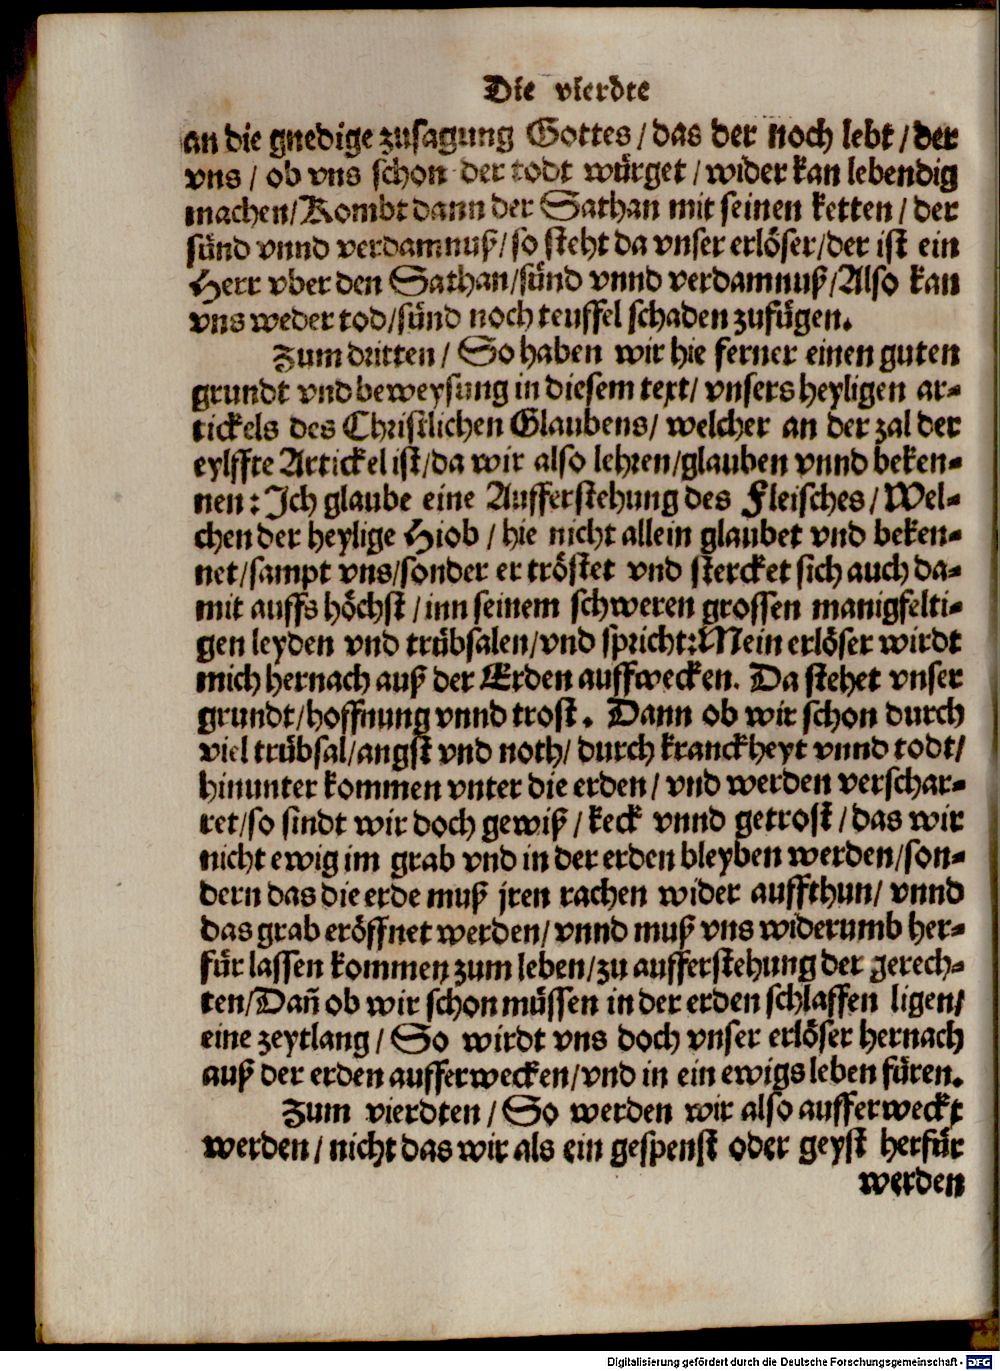 Die vierdte
an die gnedige zusagung Gottes / das der noch lebt / der
vns / ob vns schon der todt würget / wider kan lebendig
machen / Kombt dann der Sathan mit seinen ketten / der
sünd vnnd verdamnuß / so steht da vnser erlöser / der ist ein
Herr vber den Sathan / sünd vnnd verdamnuß / Also kan
vns weder tod / sünd noch teuffel schaden zufügen.
Zum dritten / So haben wir hie ferner einen guten
grundt vnd beweysung in diesem text / vnsers heyligen ar-
tickels des Christlichen Glaubens / welcher an der zal der
eylffte Artickel ist / da wir also lehren / glauben vnnd beken-
nen: Ich glaube eine Aufferstehung des Fleisches / Wel-
chen der heylige Hiob / hie nicht allein glaubet vnd beken-
net / sampt vns / sonder er tröstet vnd stercket sich auch da-
mit auffs höchst / inn seinem schweren grossen manigfelti-
gen leyden vnd trübsalen / vnd spricht: Mein erlöser wirdt
mich hernach auß der Erden auffwecken. Da stehet vnser
grundt / hoffnung vnnd trost. Dann ob wir schon durch
viel trübsal / angst vnd noth / durch kranckheyt vnnd todt /
hinunter kommen vnter die erden / vnd werden verschar-
ret / so sindt wir doch gewiß / keck vnnd getrost / das wir
nicht ewig im grab vnd in der erden bleyben werden / son-
dern das die erde muß jren rachen wider auffthun / vnnd
das grab eröffnet werden / vnnd muß vns widerumb her-
für lassen kommen zum leben / zu aufferstehung der gerech-
ten / Dañ ob wir schon müssen in der erden schlaffen ligen /
eine zeytlang / So wirdt vns doch vnser erlöser hernach
auß der erden aufferwecken / vnd in ein ewigs leben füren.
Zum vierdten / So werden wir also aufferweckt
werden / nicht das wir als ein gespenst oder geyst herfür
werden
Digitalisierung gefördert durch die Deutsche Forschungsgemeinschaft - DFG